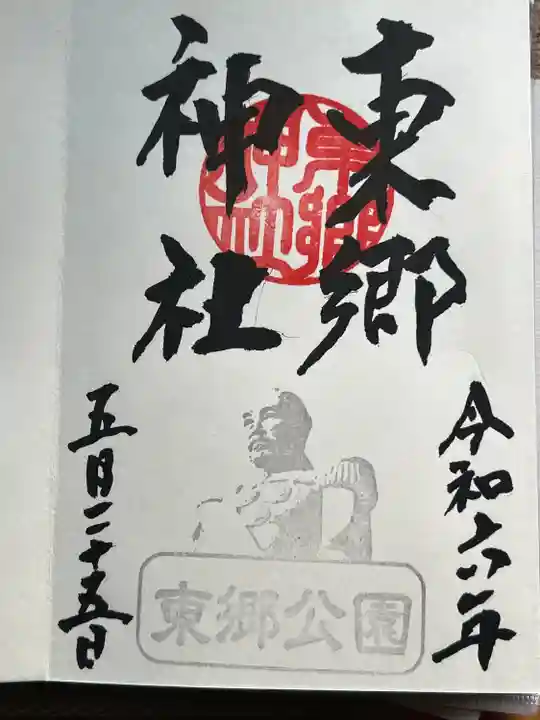 東郷
神社
令和六年
五月二十五日
東郷公園